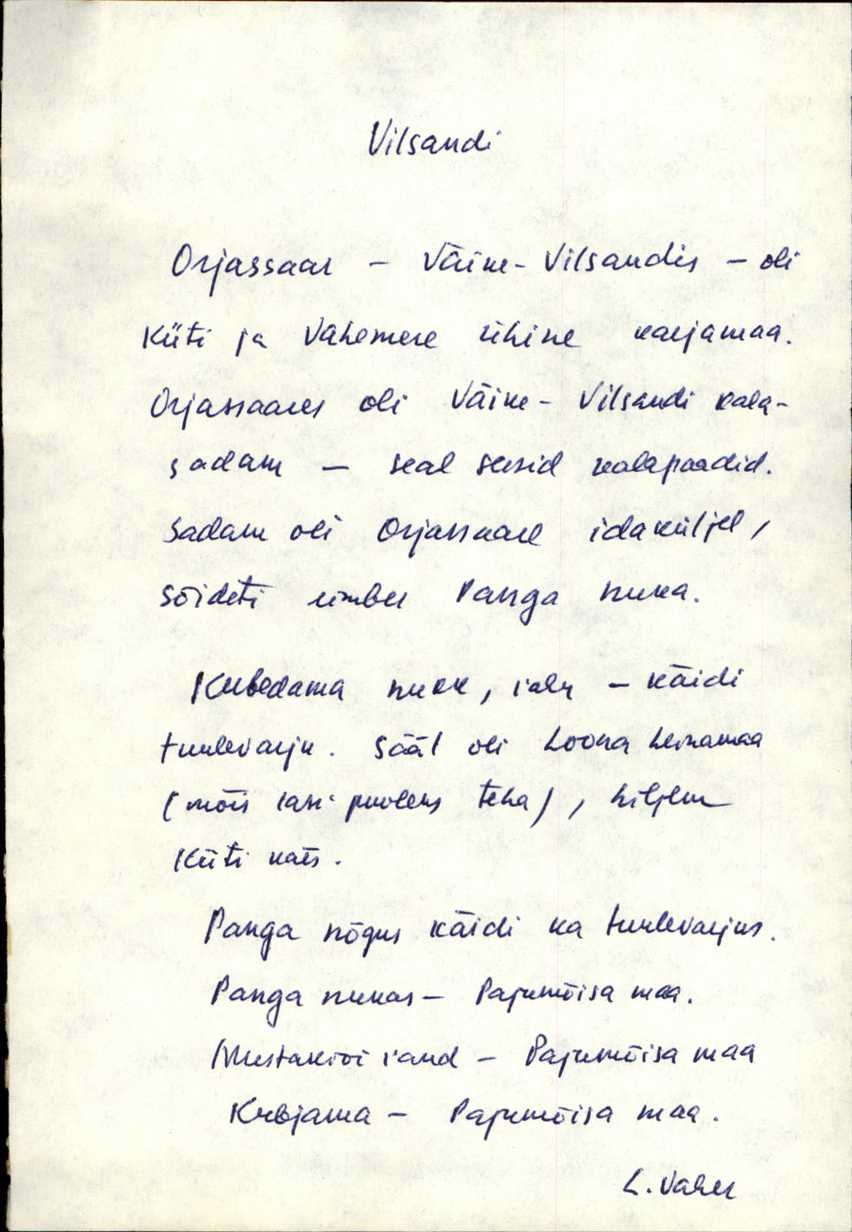 Vilsandi
Orjassaar - Väike-Vilsandis - oli
Küti ja Vahemere ühine karjamaa.
Orjassaares oli Väike-Vilsandi kala-
sadam - seal seisid kalapaadid.
Sadam oli Orjassaare idaküljel,
sõideti ümber Panga nuka.
Kubedama nukk, - käidi
tuulevarju. Sääl oli Loona heinamaa
(mõis puoleks teha), hiljem
Küti käes.
Panga nõgus käidi ka tuulevarjus.
Panga nukas - Pajumõisa maa.
Mustakivi rand - Pajumõisa maa
Kubjama - Pajumõisa maa.
L. Vaher